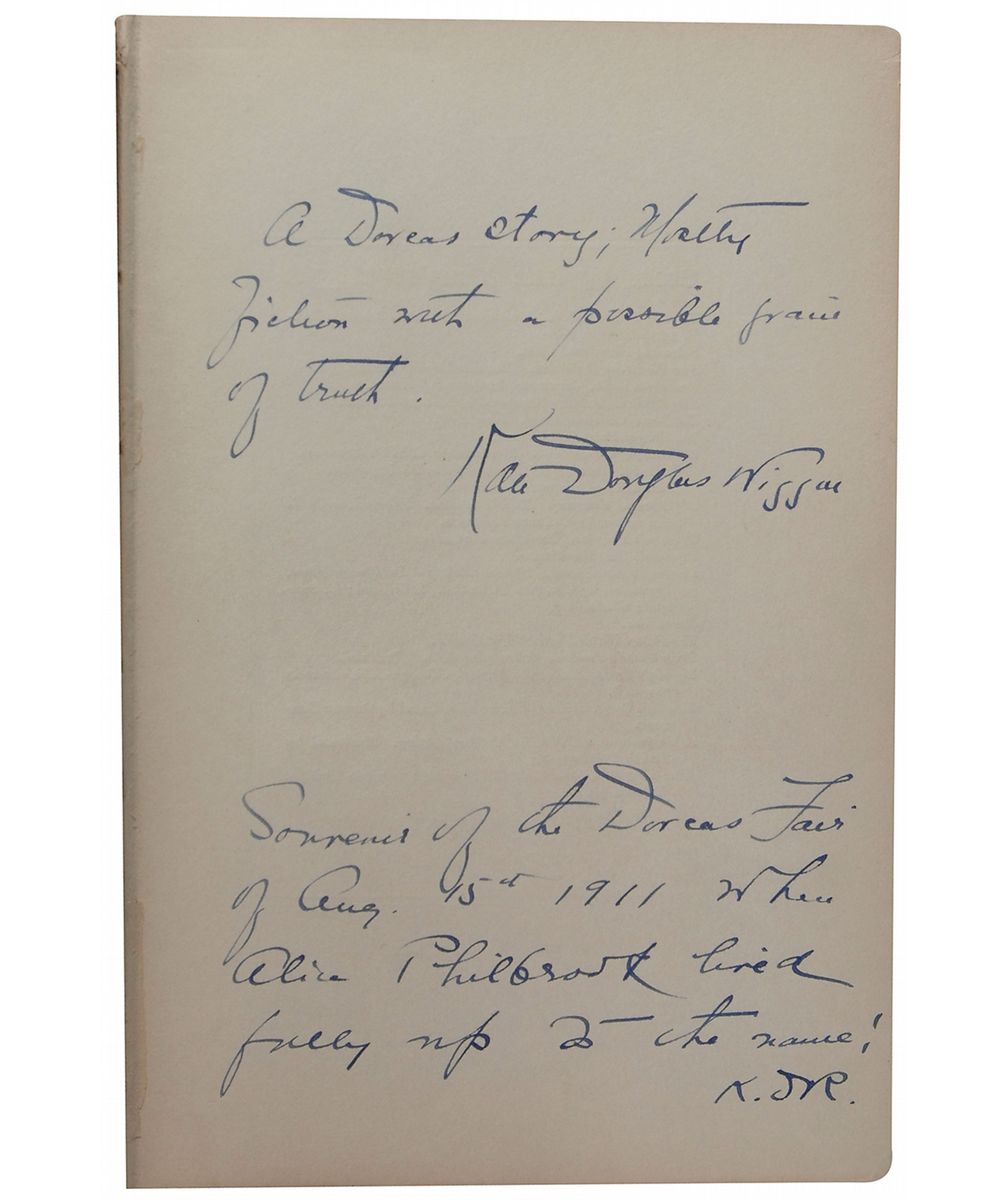 A Dorcas story; Mostly
fiction with a possible grain
of truth.
Kate Douglas Wiggin
Souvenir of the Dorcas Fair
of Aug. 15th 1911 when
Alice Philbrook lived
fully up to the name!
K.D.W.R.